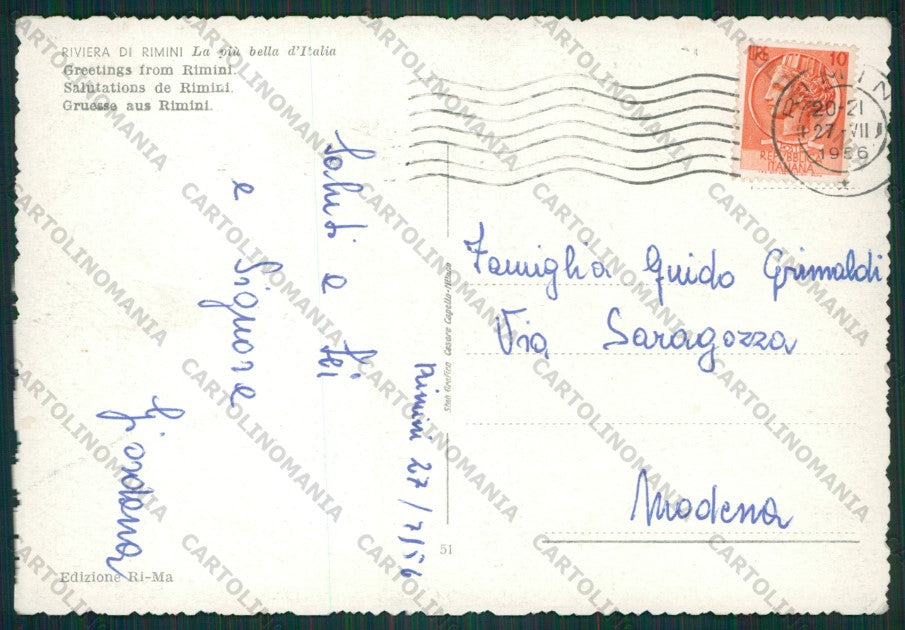 RIVIERA DI RIMINI La più bella d'Italia
Greetings from Rimini.
Salutations de Rimini.
Gruesse aus Rimini.
LIRE 10
POSTE
REPUBBLICA
ITALIANA
RIMINI
20-21
27-VII
1956
Rimini 27/7/56
Saluti a Lei
e Signore
Giordana
Famiglia Guido Grimaldi
Via Saragozza
Modena
Stab. Grafico Cesare Capello-Milano
51
Edizione Ri-Ma
CARTOLINOMANIA